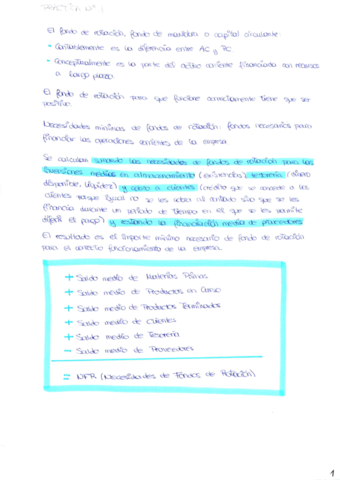 PRÁCTICA Nº 1
El fondo de rotación, fondo de maniobra o capital circulante:
• Contablemente es la diferencia entre AC y PC.
• Conceptualmente es la parte del activo corriente financiada con recursos
a largo plazo.
El fondo de rotación para que funcione correctamente tiene que ser
positivo.
Necesidades mínimas de fondos de rotación: fondos necesarios para
financiar las operaciones corrientes de la empresa
Se calculan sumando las necesidades de fondos de rotación para las
inversiones medias en almacenamiento (existencias), tesorería (dinero
disponible, liquidez) y crédito a clientes (crédito que se concede a los
clientes porque igual no se les cobra al contado sino que se les
financia durante un periodo de tiempo en el que se les permite
el pago) y restando la financiación media de proveedores
El resultado es el importe mínimo necesario de fondo de rotación
para el correcto funcionamiento de la empresa.
+ Saldo medio de Materias Primas
+ Saldo medio de Productos en Curso
+ Saldo medio de Productos Terminados
+ Saldo medio de Clientes
+ Saldo medio de Tesorería
- Saldo medio de Proveedores
= NFR (Necesidades de Fondos de Rotación)
1